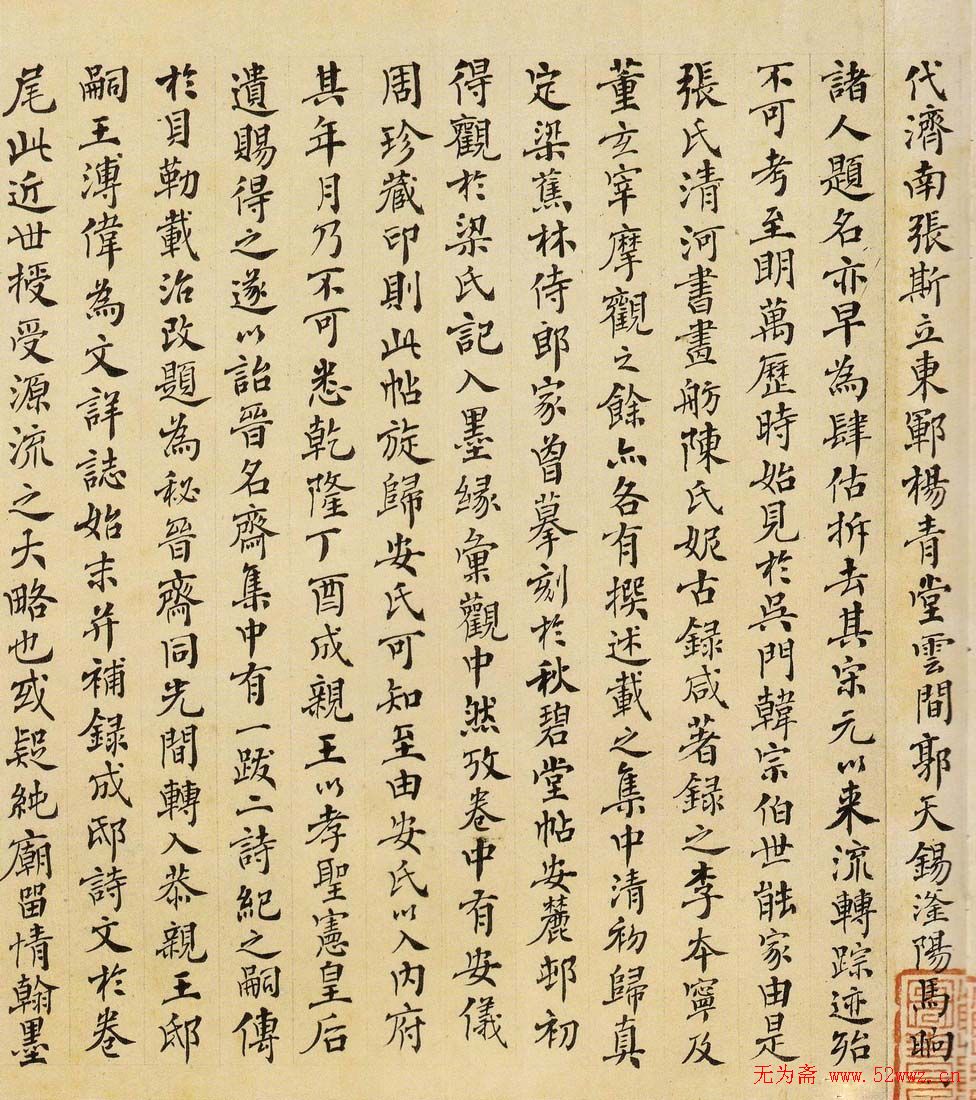 代濟南張斯立東鄆楊青堂雲間郭天錫滏陽馬昫
諸人題名亦早為肆估拆去其宋元以来流轉踪迹殆
不可考至明萬歷時始見於吳門韓宗伯世能家由是
張氏清河書畫舫陳氏妮古録咸著録之李本寧及
董玄宰摩觀之餘亦各有撰述載之集中清初歸真
定梁蕉林侍郎家曾摹刻於秋碧堂帖安麓邨初
得觀於梁氏記入墨緣彙觀中然攷卷中有安儀
周珍藏印則此帖旋歸安氏可知至由安氏以入内府
其年月乃不可悉乾隆丁酉成親王以孝聖憲皇后
遺賜得之遂以詒晉名齋集中有一跋二詩紀之嗣傳
於貝勒載治改題為秘晉齋同光間轉入恭親王邸
嗣王溥偉為文詳誌始末并補録成邸詩文於卷
尾此近世授受源流之大略也或疑純廟留情翰墨
无为斋 - www.52wwz.cn